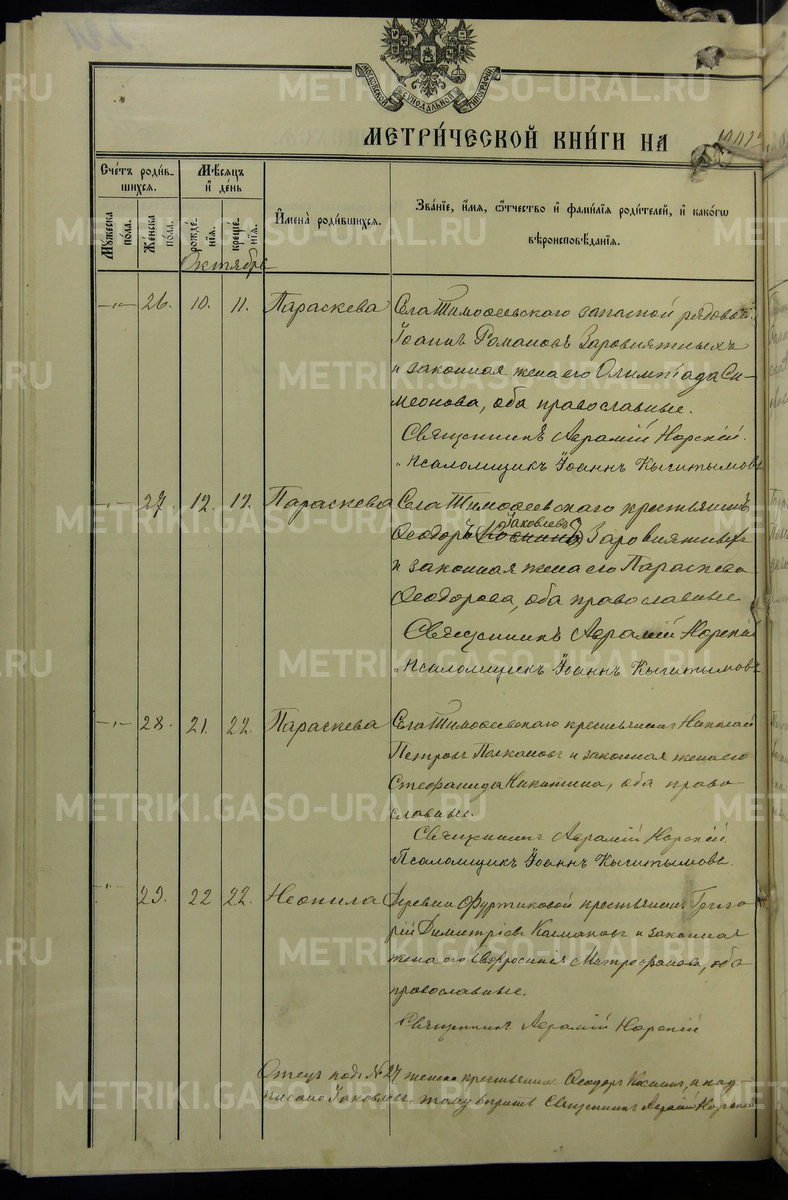 МОСКОВСКОЙ СѴНОДАЛЬНОЙ ТИПОГРАФІИ
МЕТРИ́ЧЕСКОЙ КНИ́ГИ НА
Сче́тъ роди́в-
шихся.
Мѣ́сяцъ
и҆ де́нь
Мꙋ́жеска по́ла.
Же́нска по́ла.
рожде́-
нїѧ.
креще́-
нїѧ.
И҆мена̀ роди́вшихся.
Зва́нїе, и҆́мя, ѻ҆́тчество и҆ фами́лїя роди́телей, и҆ како́гѡ
вѣроисповѣ́данїѧ.
Октябрь
26. 10. 11. Параскева Села Тимофеевскаго запасной рядовой
Іоаннъ Романовъ Заровнятныхъ
и законная жена его Олимпіада Си-
меонова, оба православные.
Священникъ Аврамій Норскій.
Псаломщикъ Іоаннъ Кычитымовъ
27. 12. 12. Параскева Села Тимофеевскаго крестьянинъ
Яковлевъ
Ѳеодоръ Косминъ Заровнятныхъ
и законная жена его Параскева
Ѳеодорова, оба православные
Священникъ Аврамій Норскій
Псаломщикъ Іоаннъ Кычитымовъ
28. 21. 22. Параскева Села Тимофеевскаго крестьянинъ Николай
Петровъ и законная жена его
Стефанида Никитина, оба право-
славные.
Священникъ Аврамій Норскій
Псаломщикъ Іоаннъ Кычитымовъ.
29. 22 22. Неонила Деревни Фуртиковой крестьянинъ Григо-
рій Димитріевъ Калмаковъ и законная
жена его Евфросинія Митрофанова, оба
православные.
Священникъ Аврамій Норскій
Отецъ подъ № 27 женска крестьянинъ Ѳеодоръ Косминъ, а над
писано Яковлевъ, тому вѣрить Священникъ Аврамій Норскій
METRIKI.GASO-URAL.RU